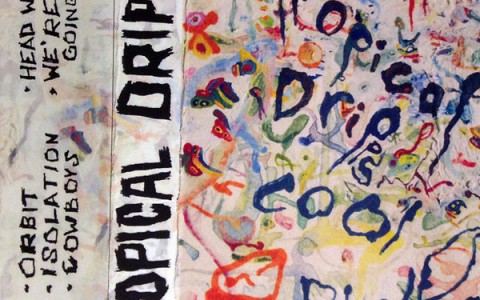 · ORBIT
· ISOLATION
· COWBOYS
· HEAD W
· WE'RE
GOING
OPICAL DRIP
ropical
Drips
cool